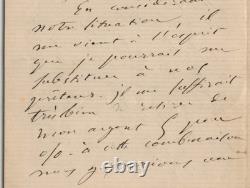 En considérant
notre situation, il
me vient à l'esprit
que je pourrais me
substituer à nos
prêteurs. je me suffirait
très bien de retirer de
mon argent 5 pour
o/o. à cette combinaison
nous y gagnerions